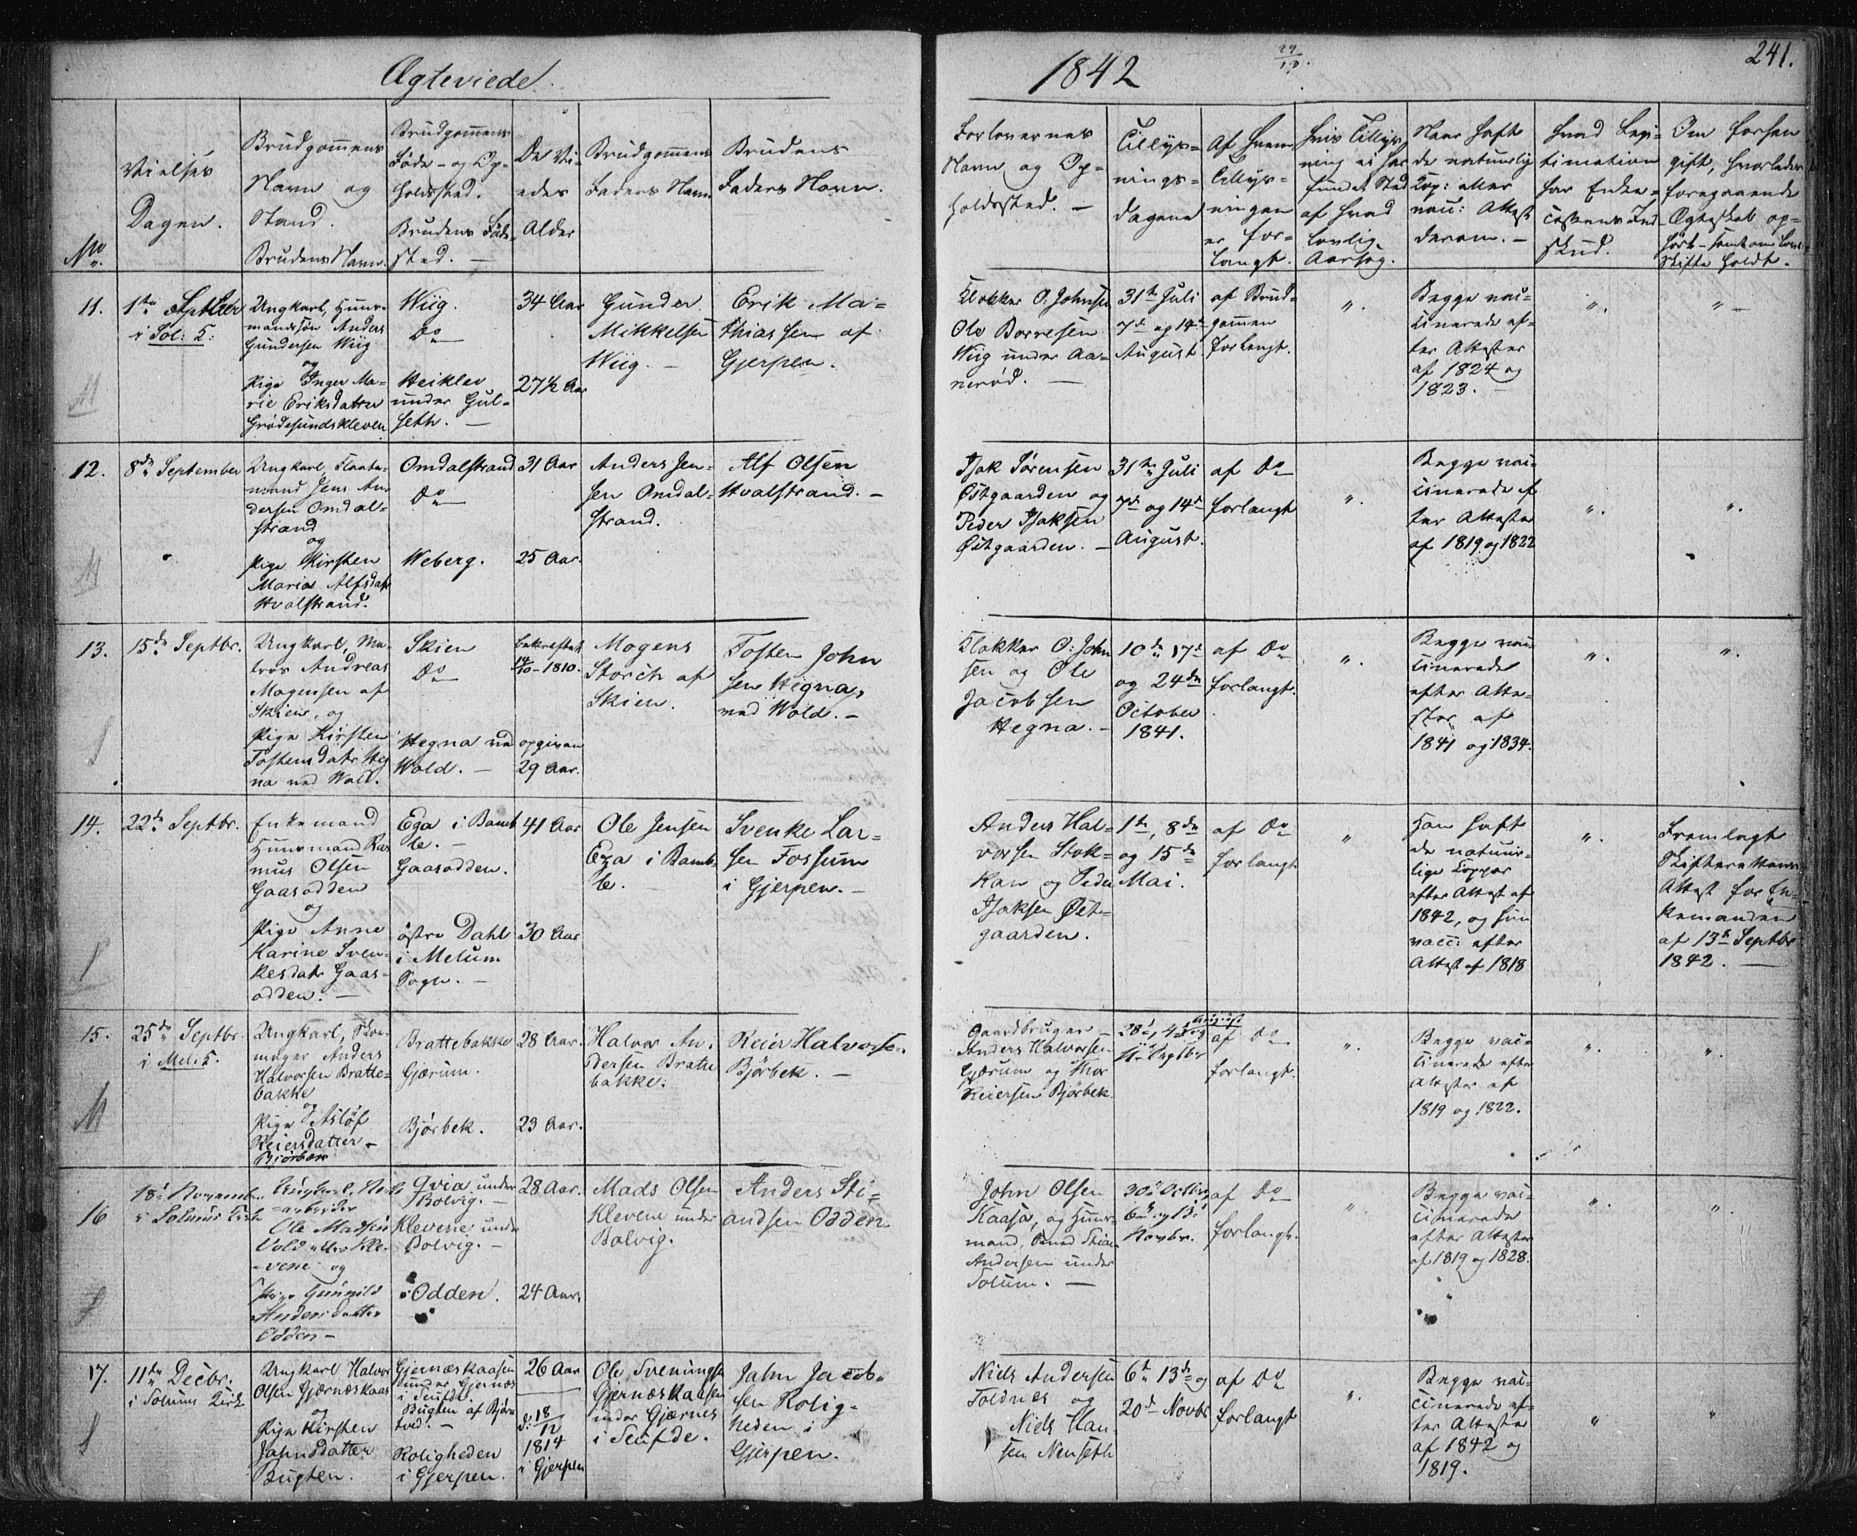 Ægteviede.
1842
241.
No.
Vielses
Dagen.
Brudgommens
Navn og
Stand.
Brudens Navn.
Brudgommens
Føde- og Op-
holdssted.
Brudens Føde-
sted. —
De Vi-
edes
Alder
Brudgommens
Faders Navn
Brudens
Faders Navn.
Forlovernes
Navn og Op-
holdssted. —
Tillys-
nings-
dagene
Af Hvem
Tillys-
ningen
er for-
langt.
Hvis Tillys-
ning ei har
fundet Sted
af hvad
lovlig
Aarsag.
Naar havt
de naturlig
Kop: eller
vac: Attest
derom. —
Hvad Legi-
timation
har Enke-
Cassens Ind
skud.
Om forhen
gift, hvorledes
foregaaende
Ægteskab op-
hørt — samt om
Skifte holdt.
11.
1te Septber
i Sol: K:
Ungkarl, Huus-
mandssøn Anders
Gundersen Wiig
og
Pige Inger Ma-
rie Eriksdatter
Grødesundskleven
Wiig.
Do
Heiklev
under Gul-
seth. —
34 Aar
27½ Aar
Gunder
Mikkelsen
Wiig. —
Erik Ma-
thiassen af
Gjerpen.
Klokker O. Johnsen
Ole Borresen
Wiig under Aa-
nerød. —
31te Juli
7de og 14de
August
af Brud-
gommen
forlangt.
".
Begge vac-
cinerede ef-
ter Attester
af 1824 og
1823.
".
"
12.
8de September
Ungkarl, Flaate-
mand Jens An-
dersen Omdal-
strand
og
Pige Kirsten
Maria Alfsdatr
Hvalstrand.
Omdalstrand
Do
Weberg.
31 Aar
25 Aar.
Anders Jen-
sen Omdal-
strand.
Alf Olsen
Hvalstrand. —
Isak Sørensen
Østgaarden og
Peder Isaksen
Østgaarden. —
31te Juli
7de og 14de
August.
af Do
forlangt
".
Begge vac-
cinerede ef
ter Attester
af 1819 og 1822
".
".
13.
15de Septbr.
Ungkarl, Ma-
tros Andreas
Mogensen af
Skien, og
Pige Kirsten
Tostensdatr Heg
na ved Wold.
Skien
Do
Hegna ved
Wold. —
bekræftet
1810.
opgiven
29 Aar.
Mogens
Storch af
Skien.
Tosten John
sen Hegna,
ved Wold. —
Klokker O: John
sen og Ole
Jacobsen
Hegna. —
10de 17de
og 24de
October
1841.
af Do
forlangt.
".
Begge vac-
cinerede
efter Atte-
ster af
1841 og 1834.
".
".
14.
22de Septbr.
Enkemand
Huusmand Ras
mus Olsen
Gaasodden
og
Pige Anne
Karine Sven-
kesdatr Gaas-
odden. —
Ega i Bamb
le. —
Gaasodden.
østre Dahl
i Melum
Sogn. —
41 Aar
30 Aar
Ole Jensen
Ega i Bamb
le. —
Svenke Lar-
sen Fossum
i Gjerpen. —
Anders Hal-
vorsen Stok-
kan og Peder
Isaksen Øst-
gaarden.
1te, 8de
og 15de
Mai.
af Do
forlangt
"
Han havt
de natuur-
lige Kopper
efter Attest af
1842, og hun
vacc: efter
Attest af 1818
".
Fremlagt
Skifterettens
Attest for En-
kemanden
af 13de Septbr
1842. —
15.
25de Septbr.
i Mel: K.
Ungkarl, Skoe-
mager Anders
Halvorsen Bratte-
bakke
og
Pige Asløf
Reiersdatter
Bjørbek
Brattebakke
Gjærum.
Bjørbek.
28 Aar.
23 Aar.
Halvor An-
dersen Bratte
bakke.
Reier Halvorse.
Bjørbek. —
Gaardbruger
Anders Halvorsen
Gjærum og Thor
Reiersen Bjørbek.
af Do
forlangt.
".
Begge vac-
cinerede efter
Attester af
1819 og 1822.
".
".
16
18de Novemb.
i Solums Kirke
Ole Madsen
Vold eller Kle-
vene og
Pige Gunnild
Andersdatter
Odden —
under
Bolvig. —
Klevene unde
Bolvig. —
Odden.
28 Aar.
24 Aar.
Mads Olsen
Klevene under
Bolvig.
Anders Sti-
andsen Odden
John Olsen
Kaasa, og Huus-
mand,
Andersen under
Solum. —
Novbr.
af Do
forlangt.
".
Begge vac-
cinerede
efter Attester
af 1819 og 1828.
"
"
17.
11te Decbr.
i Solums Kirk
Ungkarl Halvor
Olsen Gjærneskaas
og
Pige Kirsten
Jahnsdatter
Bugten.
Gjerneskaasen
under Gjernes
Bugten af Bjørn
tved.
Roligheden
i Gjerpen.
26 Aar
d: 18/12
1814
i Gjerpen
Ole Sveningse
Gjerneskaasen
under Gjærnes
Jahn Jacob-
sen Rolig-
heden i
Gjerpen.
Niels Andersen
Foldnes og
Niels Han-
sen Nenseth
6te 13de og
20de Novbr
af Do
forlangt
"
Begge vac-
cinerede ef-
ter Attester
af 1842 og
1819.
"
"